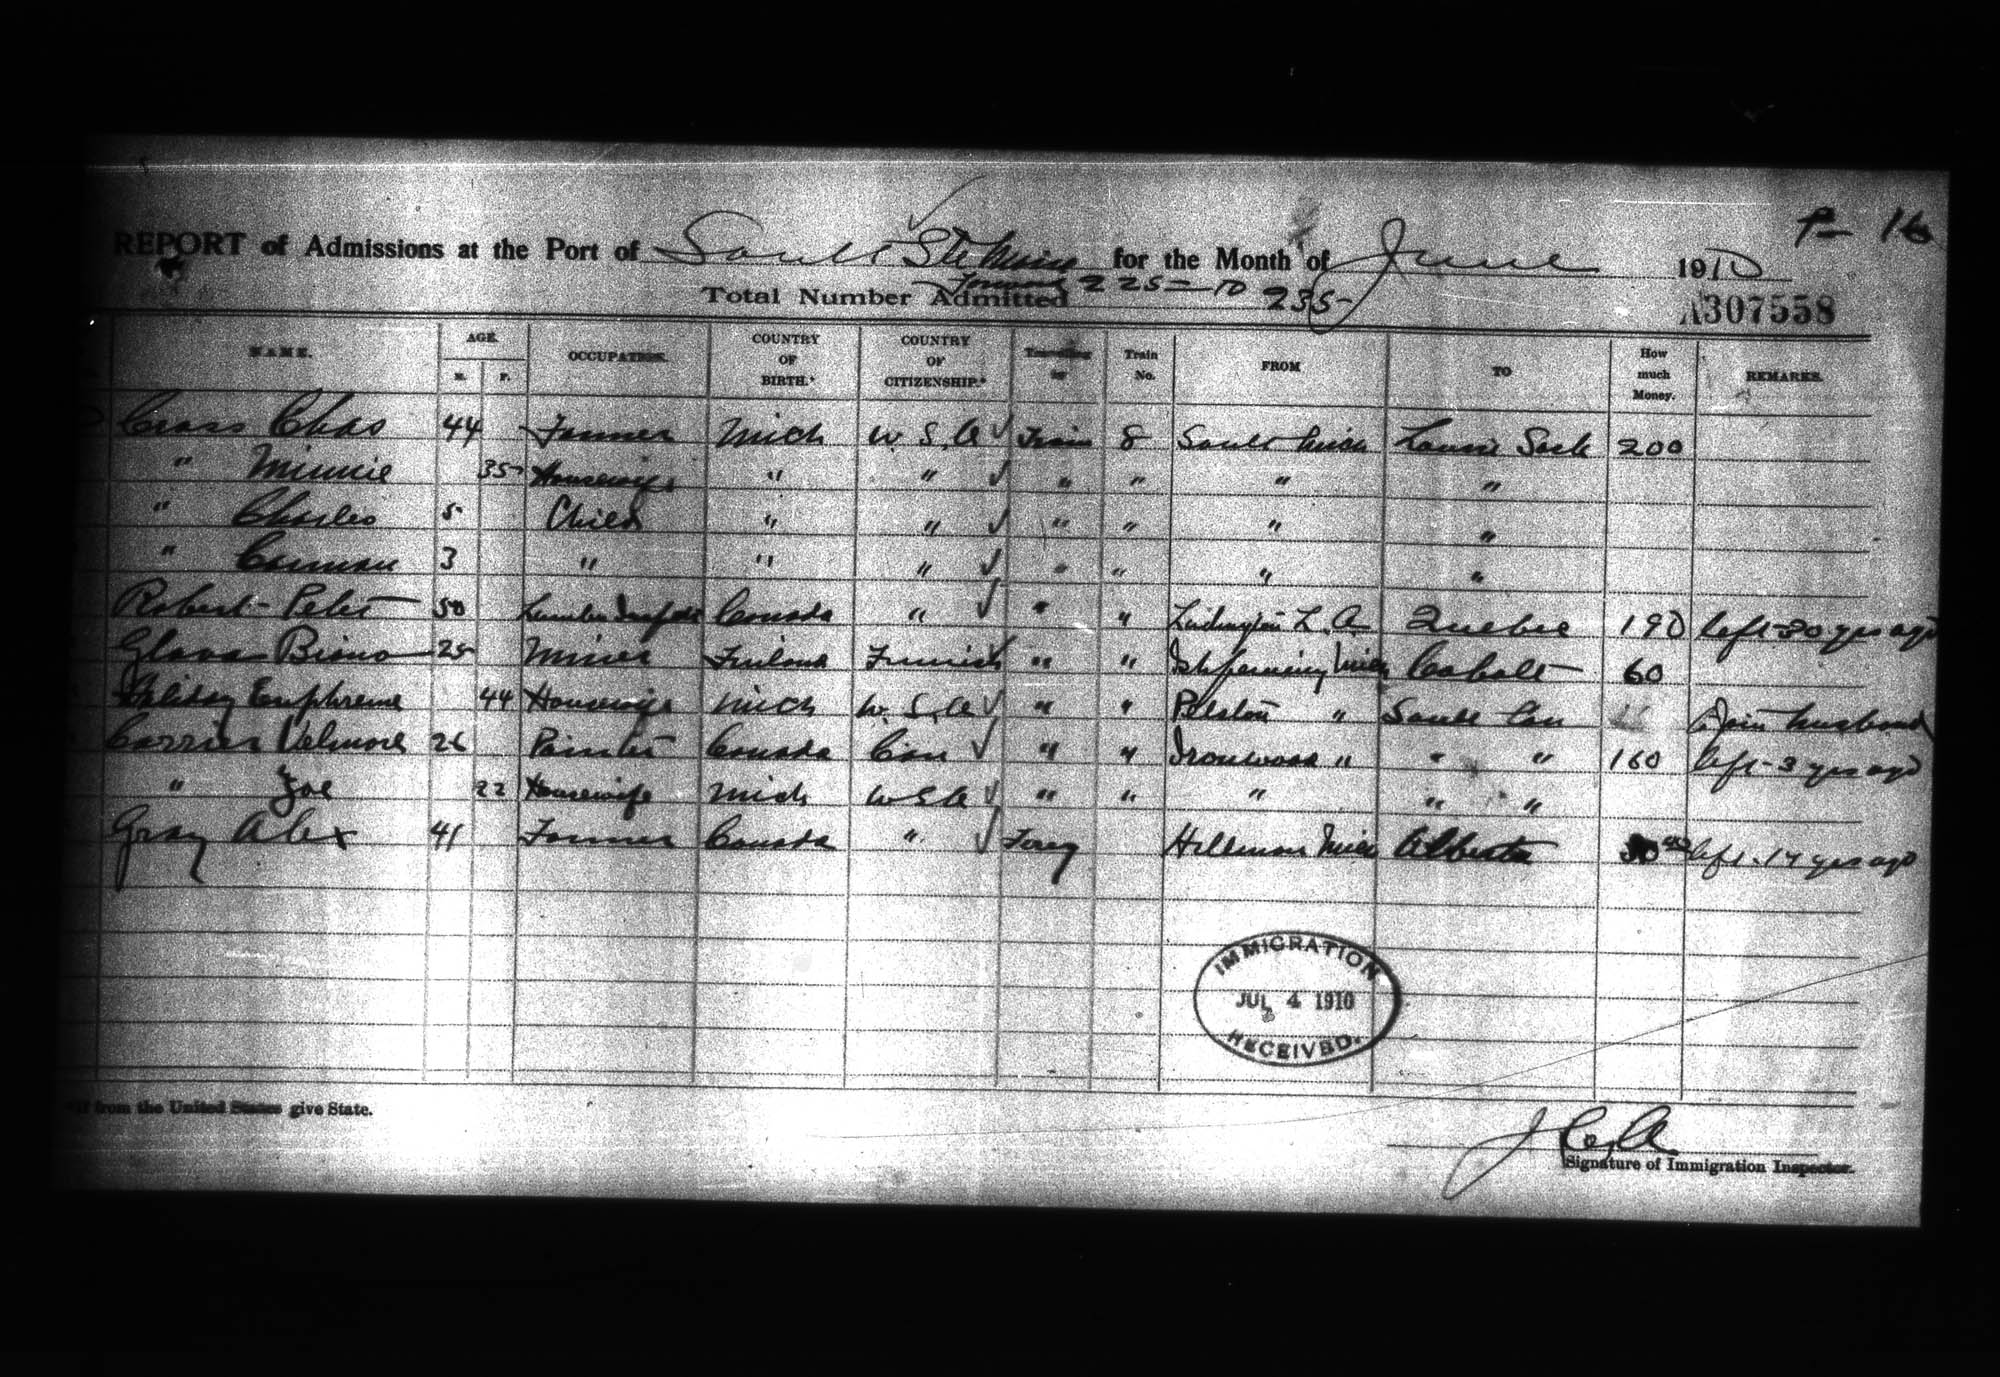 P- 16
REPORT of Admissions at the Port of Sault Ste Marie for the Month of June 1910
Total Number Admitted Forward 225 - 10 235-
A307558
NAME. AGE. M. F. OCCUPATION. COUNTRY OF BIRTH.* COUNTRY OF CITIZENSHIP.* Travelling by Train No. FROM TO How much Money. REMARKS.
Cross Chas 44 Farmer Mich U.S.A Train 8 Sault Mich 200
" Minnie 35 Housewife " " " " " "
" Charles 5 Child " " " " " "
" 3 " " " " " " "
Robert Peter 50 Lumber Canada " " " L.A. Quebec 190 left 30 yrs ago
25 Miner Finland Finnish " " Ishpeming Mich Cobalt 60
44 Housewife Mich U.S.A " " Pelston " Sault Can Join husband
Carrier 26 Painter Canada Can " " Ironwood " " " 160 left 3 yrs ago
" Zoe 22 Housewife Mich USA " " " " "
Gray Alex 41 Farmer Canada " Ferry Hillman Mich Alberta left 14 yrs ago
IMMIGRATION
JUL 4 1910
RECEIVED.
*If from the United States give State.
Signature of Immigration Inspector.